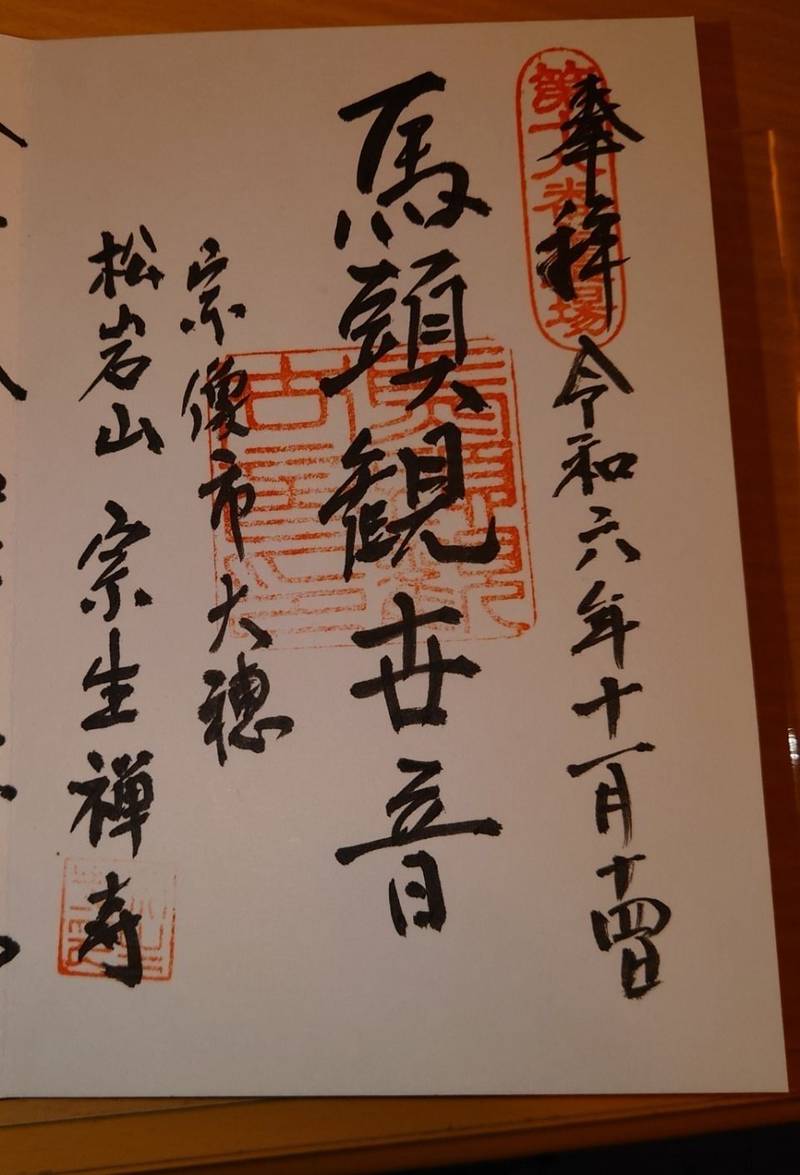 奉拝 令和六年十一月十四日
馬頭観世音
宗像市大穂
松岩山 宗生禅寺